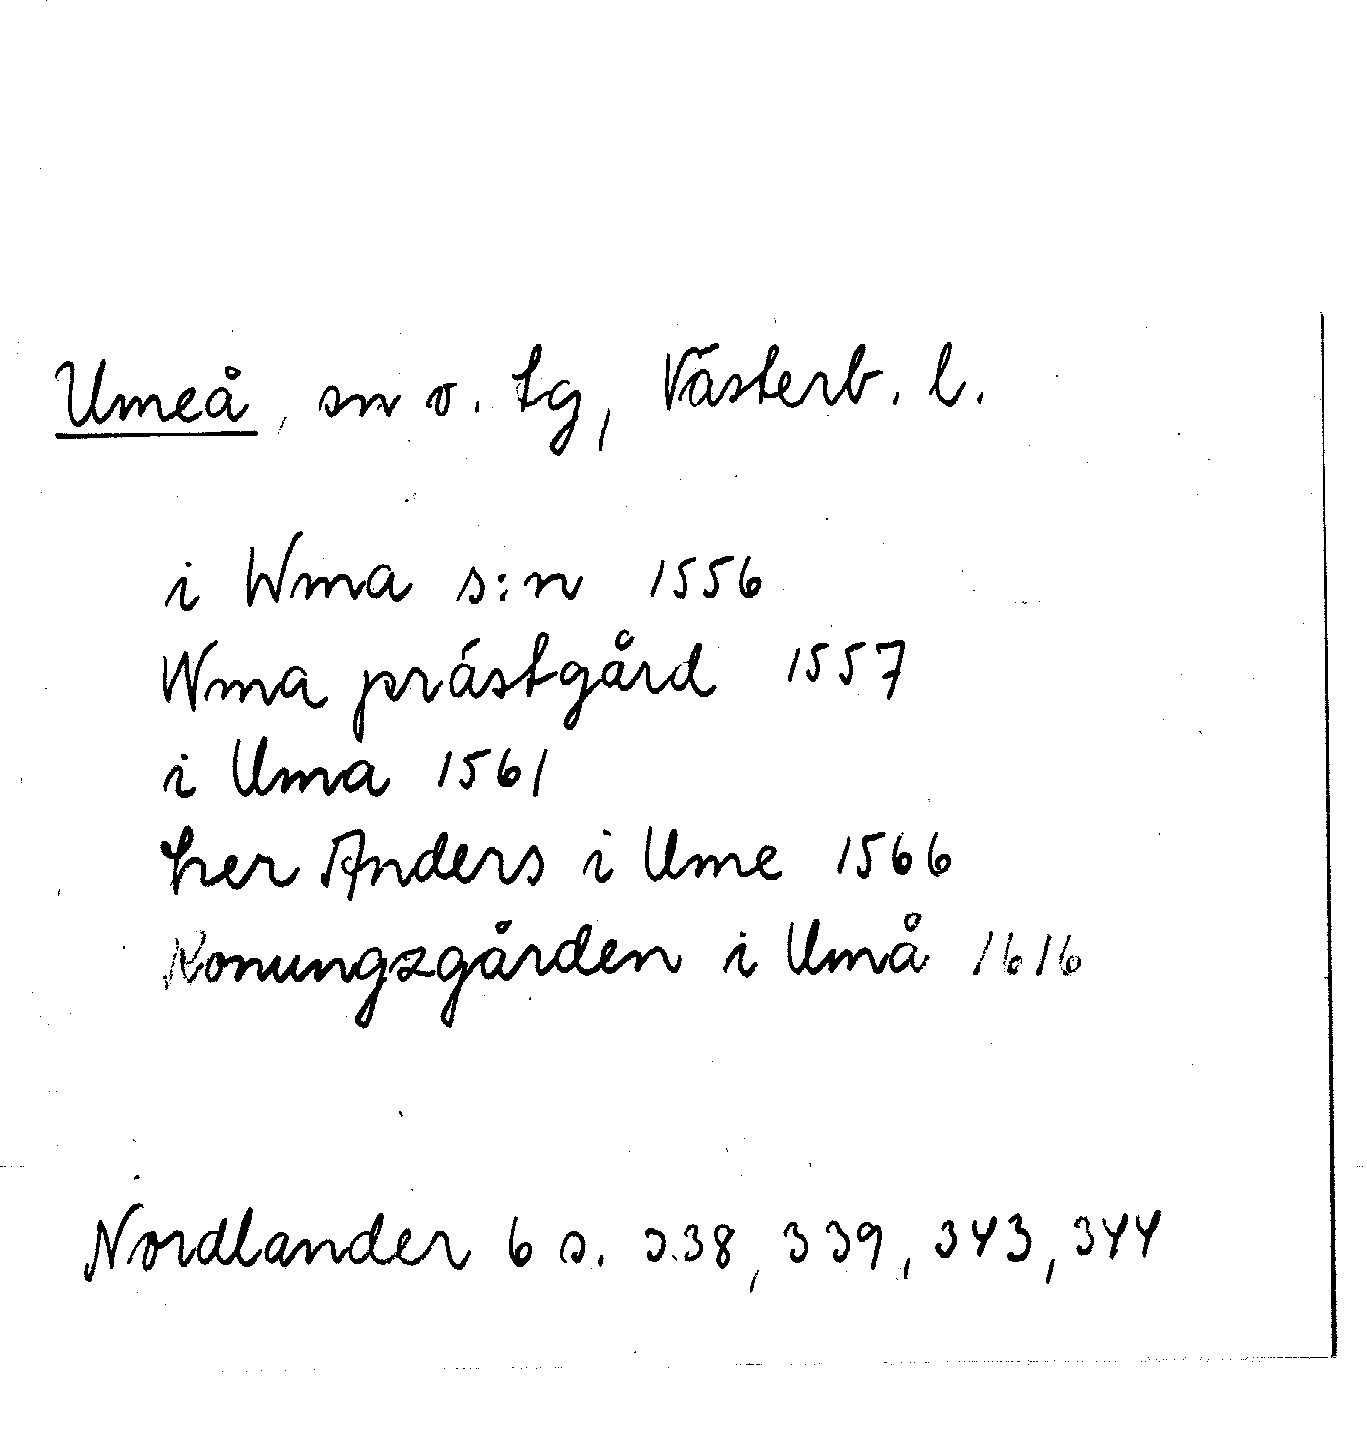 Umeå, sn o. tg, Västerb. l.
i Wma s:n 1556
Wma prästgård 1557
i Uma 1561
her Anders i Ume 1566
Konungzgården i Umå 1616
Nordlander 6 s. 338, 339, 343, 344